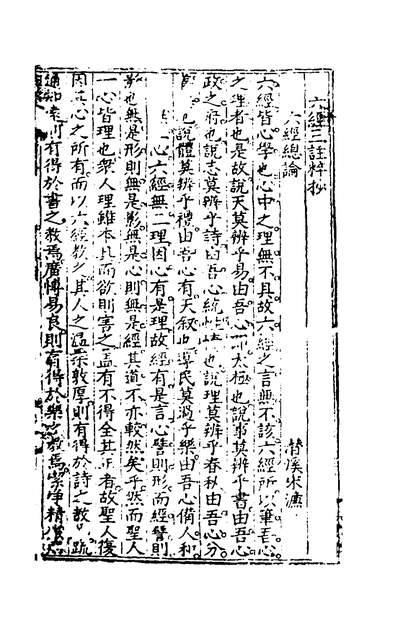 六經三註粹抄
六經總論
潛溪宋濂
六經皆心學也心中之理無不具故六經之言無不該六經所以筆吾心
之理者也是故說天莫辨乎易由吾心即太極也說事莫辨乎書由吾心
政之府也說志莫辨乎詩由吾心統性情也說理莫辨乎春秋由吾心分
也說體莫辨乎禮由吾心有天叙也導民莫過乎樂由吾心備人和
心六經無二理因心有是理故經有是言心譬則形而經譬則
影也無是形則無是影無是心則無是經其道不亦較然矣乎然而聖人
一心皆理也衆人理雖本具而欲則害之盖有不得全其正者故聖人復
因其心之所有而以六經教之其人之溫柔敦厚則有得於詩之教疏
通知遠則有得於書之教焉廣博易良則有得於樂之教焉潔净精